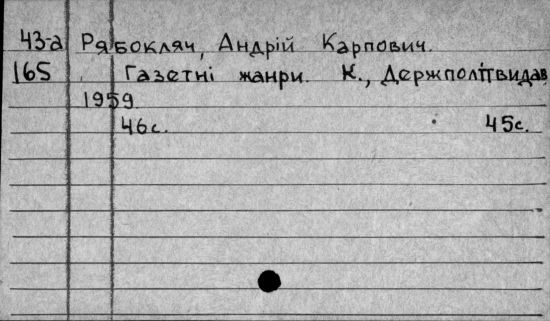 43-а Рябокляч, Андрій Карпович.
165 Газетні жанри. К., Держполітвидав,
1959.
46с. 45с.